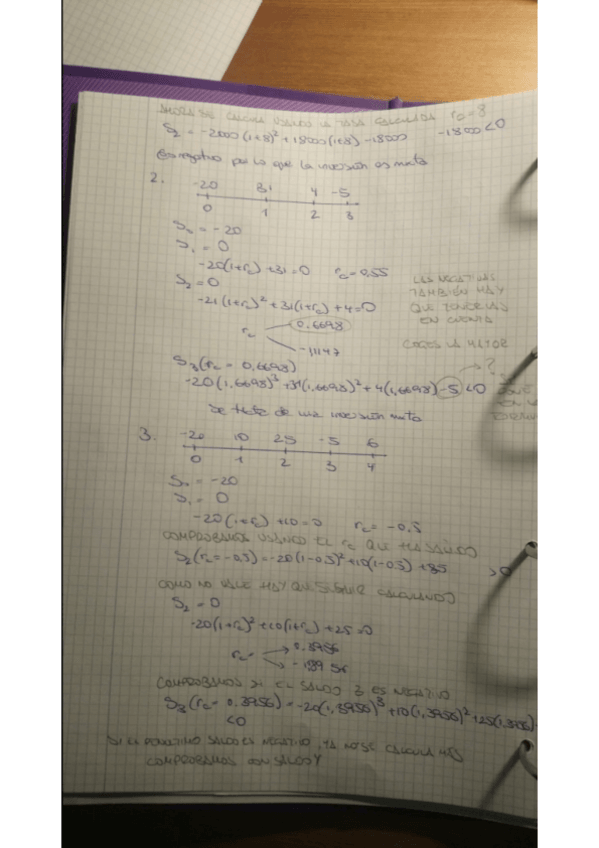 AHORA SE CALCULA USANDO LA TASA CALCULADA rc=8
S2 = -2000(1+8)² + 18000(1+8) - 18000 -18000<0
Es negativo por lo que la inversión es mixta
2. -20 31 4 -5
0 1 2 3
S0 = -20
S1 = 0
-20(1+rc) + 31 = 0 rc = 0,55
S2 = 0
-21(1+rc)² + 31(1+rc) + 4 = 0
rc 0.6698
-1,1147
LAS NEGATIVAS
TAMBIÉN HAY
QUE TENERLAS
EN CUENTA
COGES LA MAYOR
S3(rc = 0,6698)
-20(1,6698)³ + 31(1,6698)² + 4(1,6698) - 5 < 0
?
Se trata de una inversión mixta
3. -20 10 25 -5 6
0 1 2 3 4
S0 = -20
S1 = 0
-20(1+rc) + 10 = 0 rc = -0.5
COMPROBAMOS USANDO EL rc QUE HA SALIDO
S2(rc = -0.5) = -20(1-0.5)² + 10(1-0.5) + 25 >0
COMO NO VALE HAY QUE SEGUIR CALCULANDO
S2 = 0
-20(1+rc)² + 10(1+rc) + 25 = 0
rc = 0.3956
COMPROBAMOS SI EL SALDO 3 ES NEGATIVO
S3(rc = 0.3956) = -20(1,3956)³ + 10(1,3956)² + 25(1,3956)
<0
SI EL PENÚLTIMO SALDO ES NEGATIVO, YA NO SE CALCULA MÁS
COMPROBAMOS CON SALDO